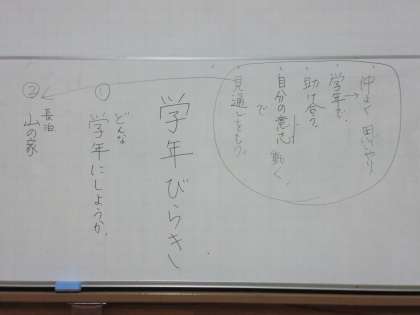 仲よく 思いやり
学年で、
助け合う
自分の意志で動く。
見通しをもつ。
学年びらき
① どんな
学年にしようか。
② 長泊
山の家